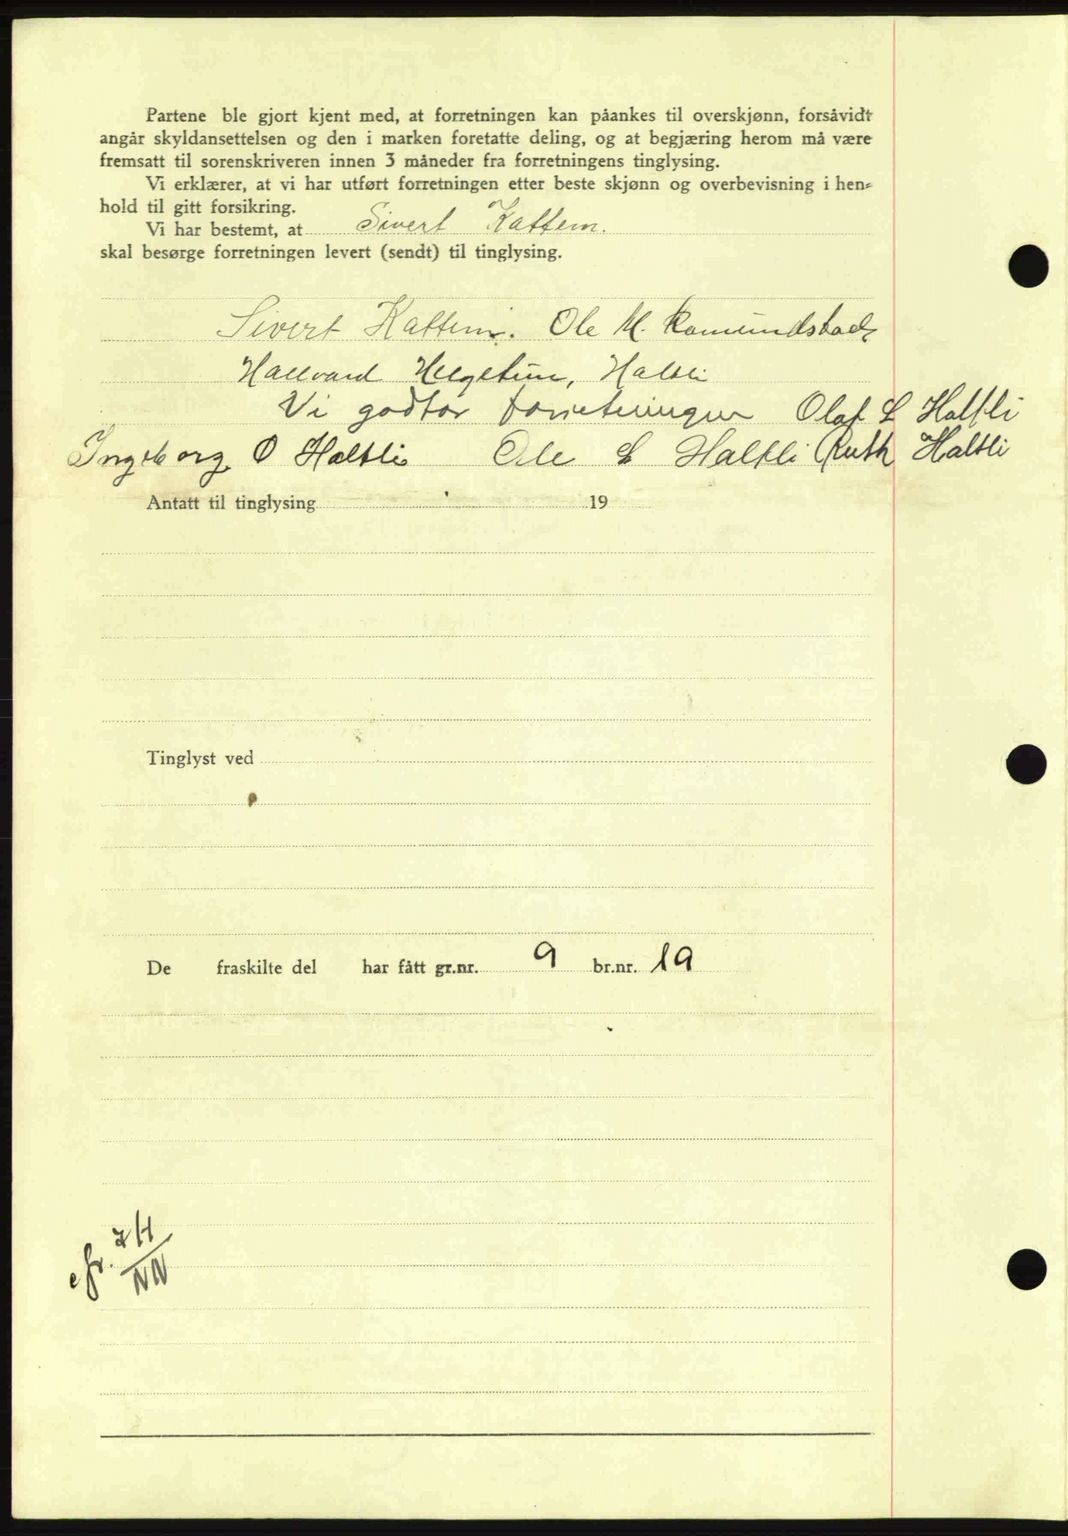 Partene ble gjort kjent med, at forretningen kan påankes til overskjønn, forsåvidt
angår skyldansettelsen og den i marken foretatte deling, og at begjæring herom må være
fremsatt til sorenskriveren innen 3 måneder fra forretningens tinglysing.
Vi erklærer, at vi har utført forretningen etter beste skjønn og overbevisning i hen-
hold til gitt forsikring.
Vi har bestemt, at Sivert Kattem.
skal besørge forretningen levert (sendt) til tinglysing.
Sivert Kattem. Ole M. Romundstad
Hallvard Helgetun, Haltli
Vi godtar forretningen Olaf L Haltli
Ingeborg O Haltli Ole L Haltli Ruth Haltli
Antatt til tinglysing 19
Tinglyst ved
De fraskilte del har fått gr.nr. 9 br.nr. 19
NN